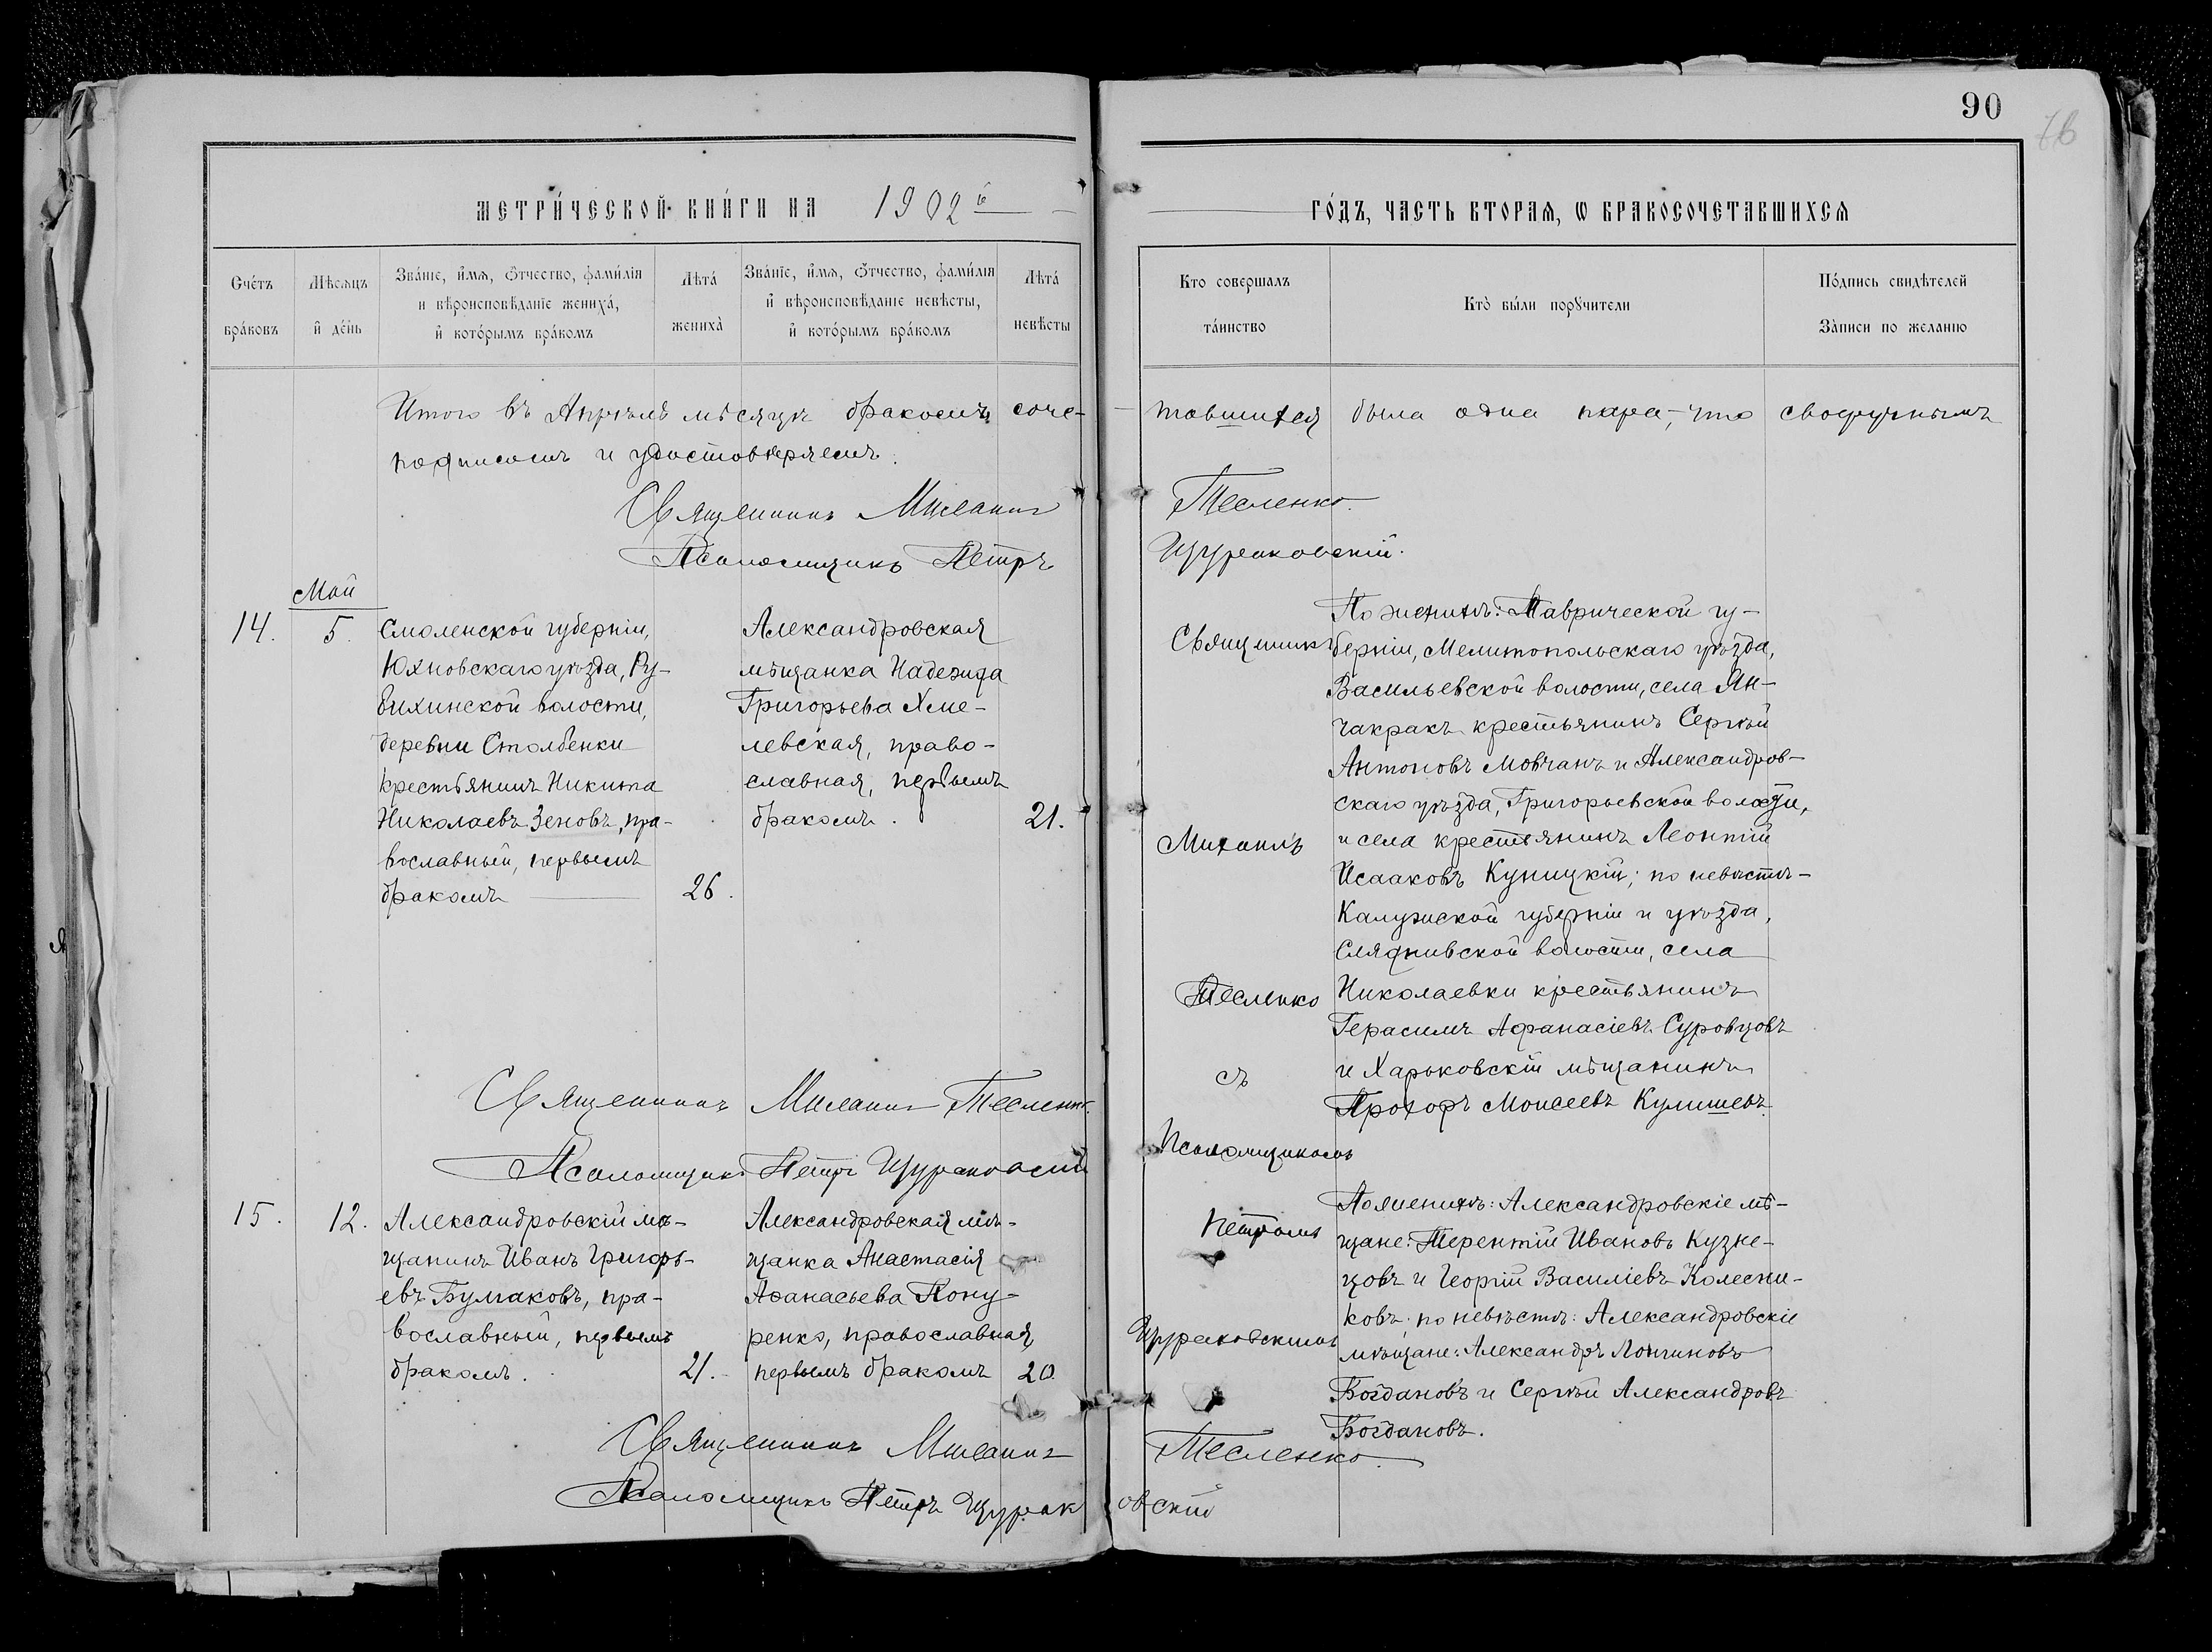 90
76
МЕТРИ́ЧЕСКОЙ КНИ́ГИ НА 1902й ГО́ДЪ, ЧАСТЬ ВТОРАѦ, Ѡ БРАКОСОЧЕТАВШИХСѦ
Сче́тъ бра́ковъ
Мѣсѧцъ и҆ де́нь
Зва́нїе, и҆́мѧ, ѻ҆́тчество, фами́лїѧ
и вѣроисповѣ́данїе жениха̀,
и҆ кото́рымъ бра́комъ
Лѣта̀ жениха̀
Зва́нїе, и҆́мѧ, ѻ҆́тчество, фами́лїѧ
и҆ вѣроисповѣ́данїе невѣ́сты,
и҆ кото́рымъ бра́комъ
Лѣта̀ невѣ́сты
Кто совершалъ та́инство
Кто̀ бы́ли порꙋчители
По́дпись свидѣтелей
За́писи по желанїю
Итого въ Апрѣлѣ мѣсяцѣ бракомъ соче-
тавшихся была одна пара, что своручнымъ
подписомъ и удостовѣряемъ.
Священникъ Михаилъ Тесленко.
Псаломщикъ Петръ Щураковскій.
Май
14.
5.
Смоленской губерніи,
Юхновскаго уѣзда, Ру-
бихинской волости,
деревни Столбенки
крестьянинъ Никита
Николаевъ Зеновъ, пра-
вославный, первымъ
бракомъ
26.
Александровская
мѣщанка Надежда
Григорьева Хме-
левская, право-
славная, первымъ
бракомъ.
21.
Священникъ
Михаилъ
Тесленко
съ
Псаломщикомъ
Петромъ
Щураковскимъ
По женихѣ: Таврической гу-
берніи, Мелитопольскаго уѣзда,
Васильевской волости, села Ян-
чакракъ крестьянинъ Сергѣй
Антоновъ Мовчанъ и Александров-
скаго уѣзда, Григорьевской волости,
и села крестьянинъ Леонтій
Исааковъ Куницкій; по невѣстѣ-
Калужской губерніи и уѣзда,
волости, села
Николаевки крестьянинъ
Герасимъ Афанасіевъ Суровцовъ
и Харьковскій мѣщанинъ
Прохоръ Моисеевъ Кулишевъ.
Священникъ Михаилъ Тесленко.
Псаломщикъ Петръ Щураковскій
15.
12.
Александровскій мѣ-
щанинъ Иванъ Григорь-
евъ Булгаковъ, пра-
вославный, первымъ
бракомъ.
21.
Александровская мѣ-
щанка Анастасія
Аѳанасьева Кону-
ренко, православная,
первымъ бракомъ
20.
По женихѣ: Александровскіе мѣ-
щане: Терентій Ивановъ Кузне-
цовъ и Георгій Василіевъ Колесни-
ковъ; по невѣстѣ: Александровскіе
мѣщане: Александръ Логиновъ
Богдановъ и Сергѣй Александровъ
Богдановъ.
Священникъ Михаилъ Тесленко.
Псаломщикъ Петръ Щураковскій